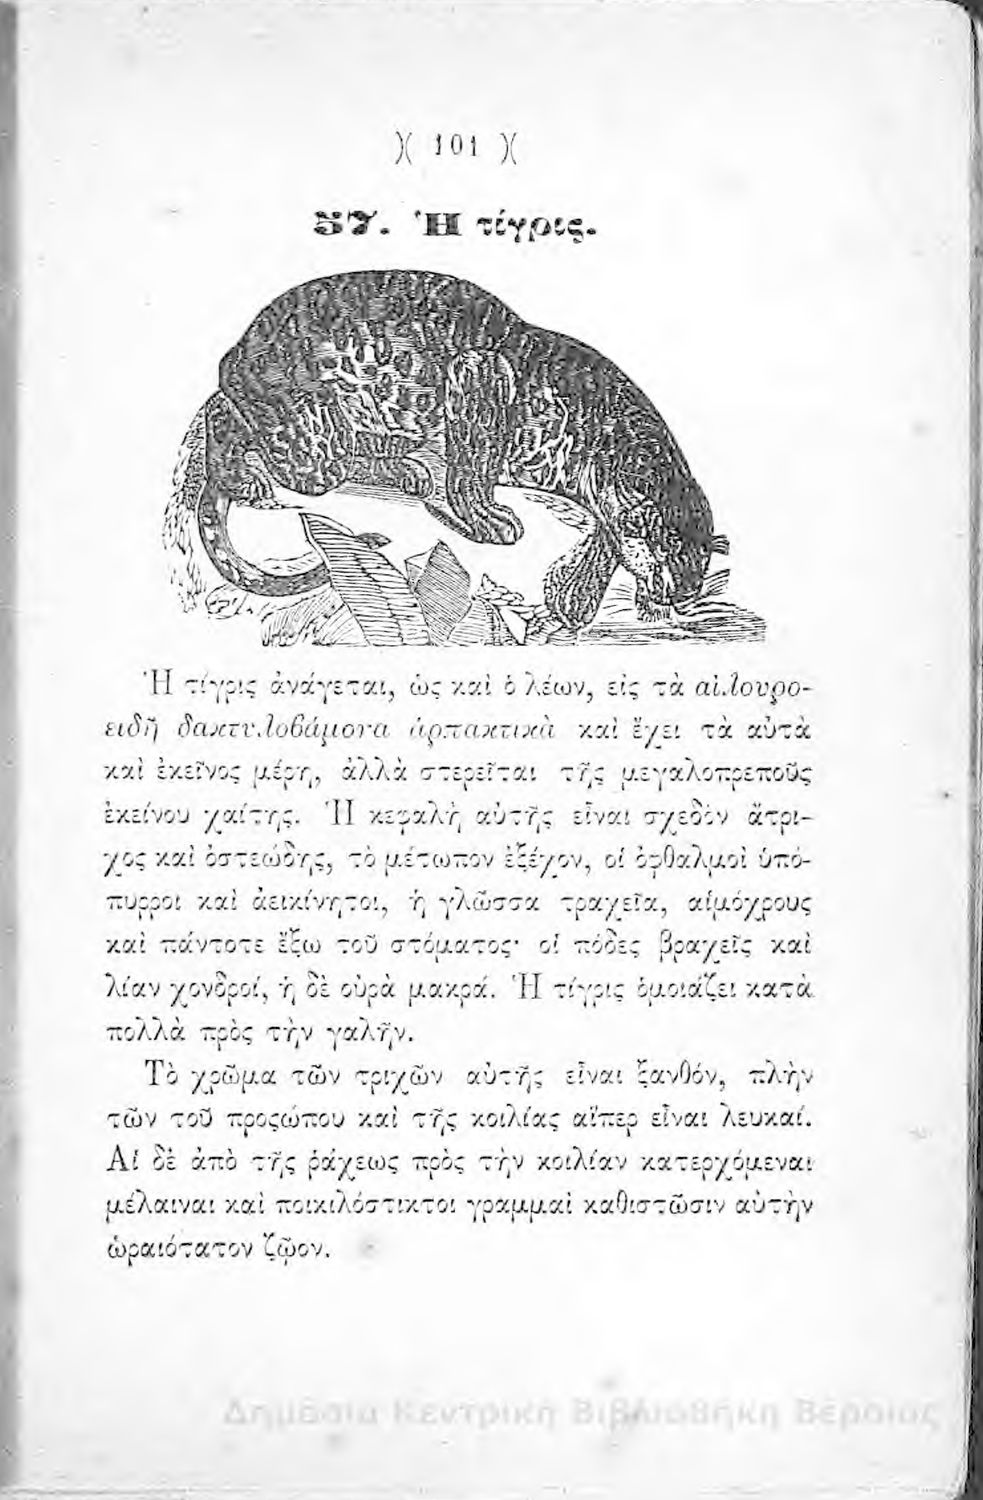 )( 101 )(
57. Ἡ τίγρις.
Ἡ τίγρις ἀνάγεται, ὡς καὶ ὁ λέων, εἰς τὰ αἰλουρο-
ειδῆ δακτυλοβάμονα ἁρπακτικὰ καὶ ἔχει τὰ αὐτὰ
καὶ ἐκεῖνος μέρη, ἀλλὰ στερεῖται τῆς μεγαλοπρεποῦς
ἐκείνου χαίτης. Ἡ κεφαλὴ αὐτῆς εἶναι σχεδὸν ἄτρι-
χος καὶ ὀστεώδης, τὸ μέτωπον ἐξέχον, οἱ ὀφθαλμοὶ ὑπό-
πυρροι καὶ ἀεικίνητοι, ἡ γλῶσσα τραχεῖα, αἱμόχρους
καὶ πάντοτε ἔξω τοῦ στόματος· οἱ πόδες βραχεῖς καὶ
λίαν χονδροί, ἡ δὲ οὐρὰ μακρά. Ἡ τίγρις ὁμοιάζει κατὰ
πολλὰ πρὸς τὴν γαλῆν.
Τὸ χρῶμα τῶν τριχῶν αὐτῆς εἶναι ξανθόν, πλὴν
τῶν τοῦ προςώπου καὶ τῆς κοιλίας αἵπερ εἶναι λευκαί.
Αἱ δὲ ἀπὸ τῆς ῥάχεως πρὸς τὴν κοιλίαν κατερχόμεναι
μέλαιναι καὶ ποικιλόστικτοι γραμμαὶ καθιστῶσιν αὐτὴν
ὡραιότατον ζῷον.
Δημόσια Κεντρική Βιβλιοθήκη Βέροιας